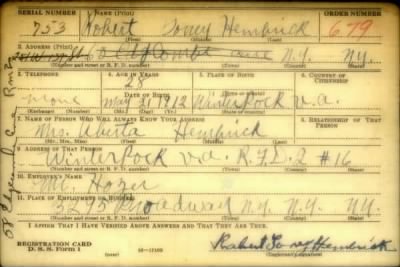 SERIAL NUMBER 1. NAME (Print) ORDER NUMBER
753 Robert Toney Hembrick 679
2. ADDRESS (Print)
N.Y. N.Y.
(Number and street or R. F. D. number) (Town) (County) (State)
3. TELEPHONE 4. AGE IN YEARS 5. PLACE OF BIRTH 6. COUNTRY OF CITIZENSHIP
28
none DATE OF BIRTH
May 21 1912 Winterpock v.a.
(Exchange) (Number) (Mo.) (Day) (Yr.) (State or country)
7. NAME OF PERSON WHO WILL ALWAYS KNOW YOUR ADDRESS 8. RELATIONSHIP OF THAT PERSON
Mrs. Alberta Hembrick
(Mr., Mrs., Miss) (First) (Middle) (Last)
9. ADDRESS OF THAT PERSON
Winterpock v.a. R.F.D. 2 #16
(Number and street or R. F. D. number) (Town) (County) (State)
10. EMPLOYER'S NAME
Mr.
11. PLACE OF EMPLOYMENT OR BUSINESS
3295 Broadway N.Y. N.Y. NY.
(Number and street or R. F. D. number) (Town) (County) (State)
I AFFIRM THAT I HAVE VERIFIED ABOVE ANSWERS AND THAT THEY ARE TRUE.
REGISTRATION CARD
D. S. S. Form 1 Robert Toney Hembrick
(Registrant's signature)